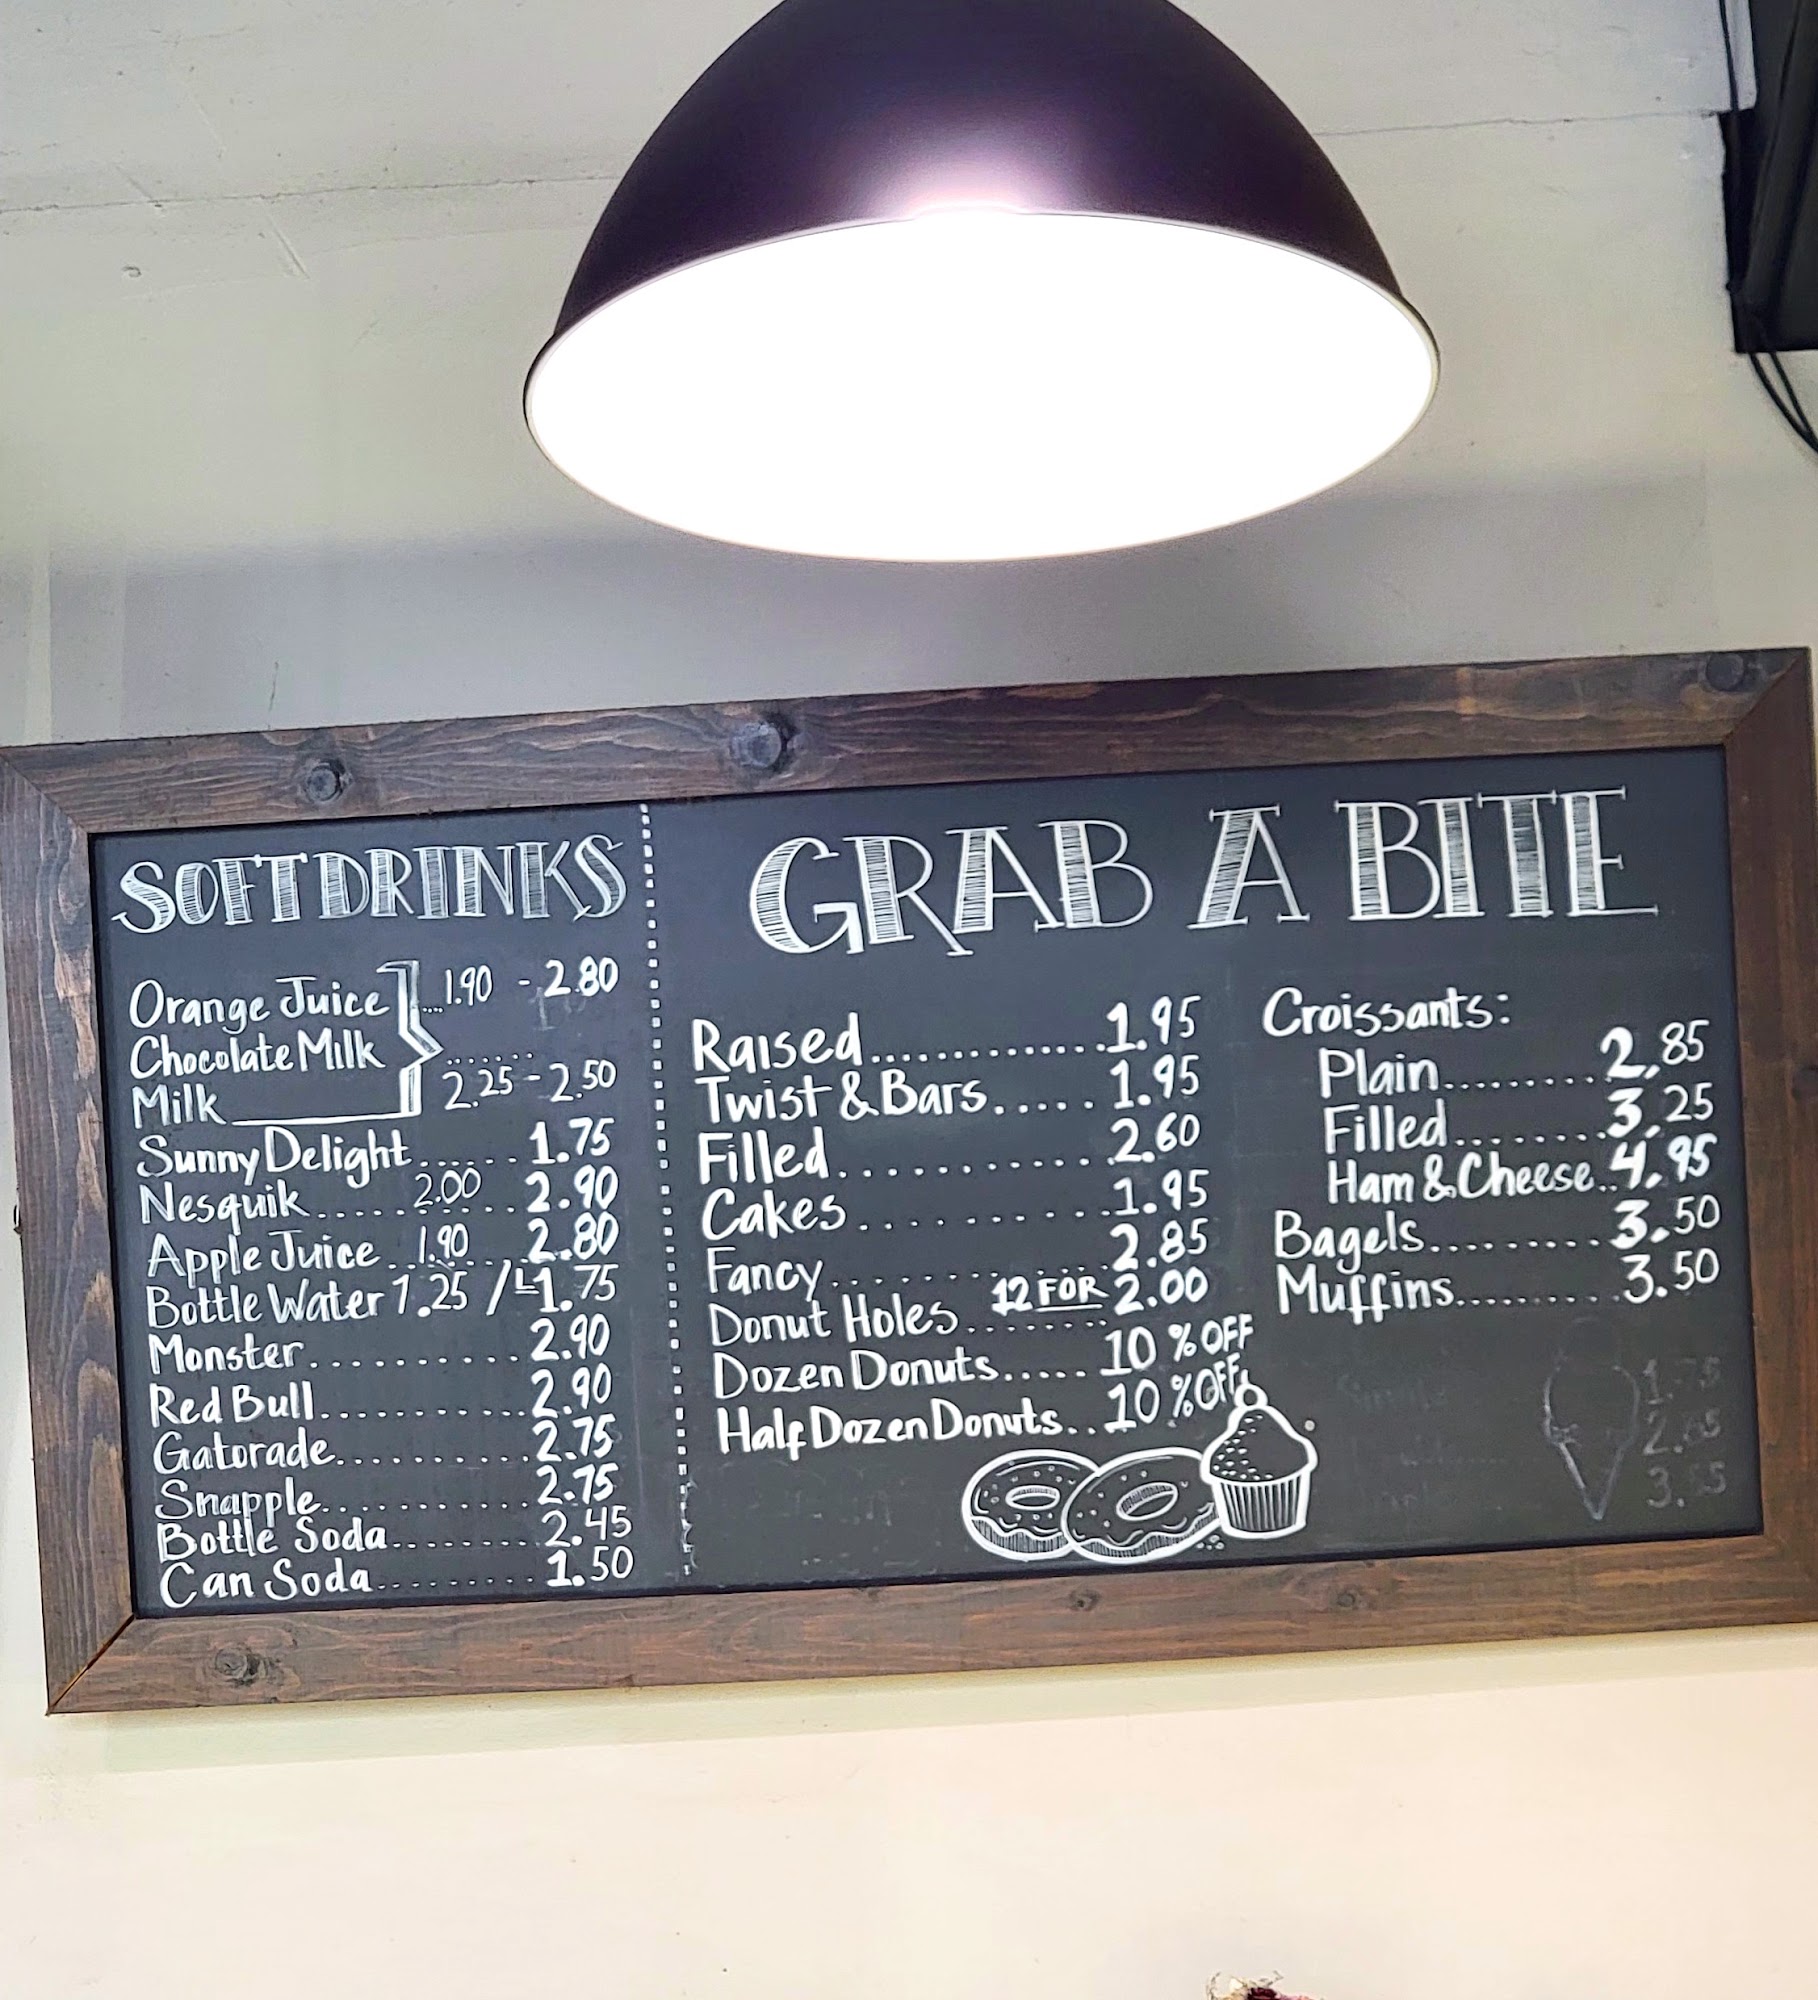 SOFT DRINKS
Orange Juice .... 1.90 - 2.80
Chocolate Milk .......
Milk 2.25 - 2.50
Sunny Delight...... 1.75
Nesquik..... 2.00 ... 2.90
Apple Juice .. 1.90 ... 2.80
Bottle Water 1.25 / L 1.75
Monster.......... 2.90
Red Bull.......... 2.90
Gatorade.......... 2.75
Snapple.......... 2.75
Bottle Soda........ 2.45
Can Soda......... 1.50
GRAB A BITE
Raised............. 1.95
Twist & Bars..... 1.95
Filled............ 2.60
Cakes.......... 1.95
Fancy.......... 2.85
Donut Holes........ 12 FOR 2.00
Dozen Donuts..... 10 % OFF
Half Dozen Donuts.. 10 % OFF
Croissants:
Plain......... 2.85
Filled........ 3.25
Ham & Cheese.. 4.95
Bagels.......... 3.50
Muffins.......... 3.50